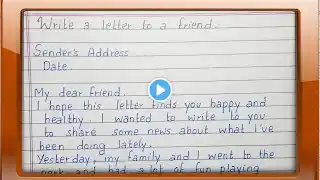 Write a letter to a friend.
Sender's Address
Date.
My dear friend.
I hope this letter finds you happy and
healthy. I wanted to write to you
to share some news about what I've
been doing lately.
Yesterday, my family and I went to the
park and had a lot of fun playing